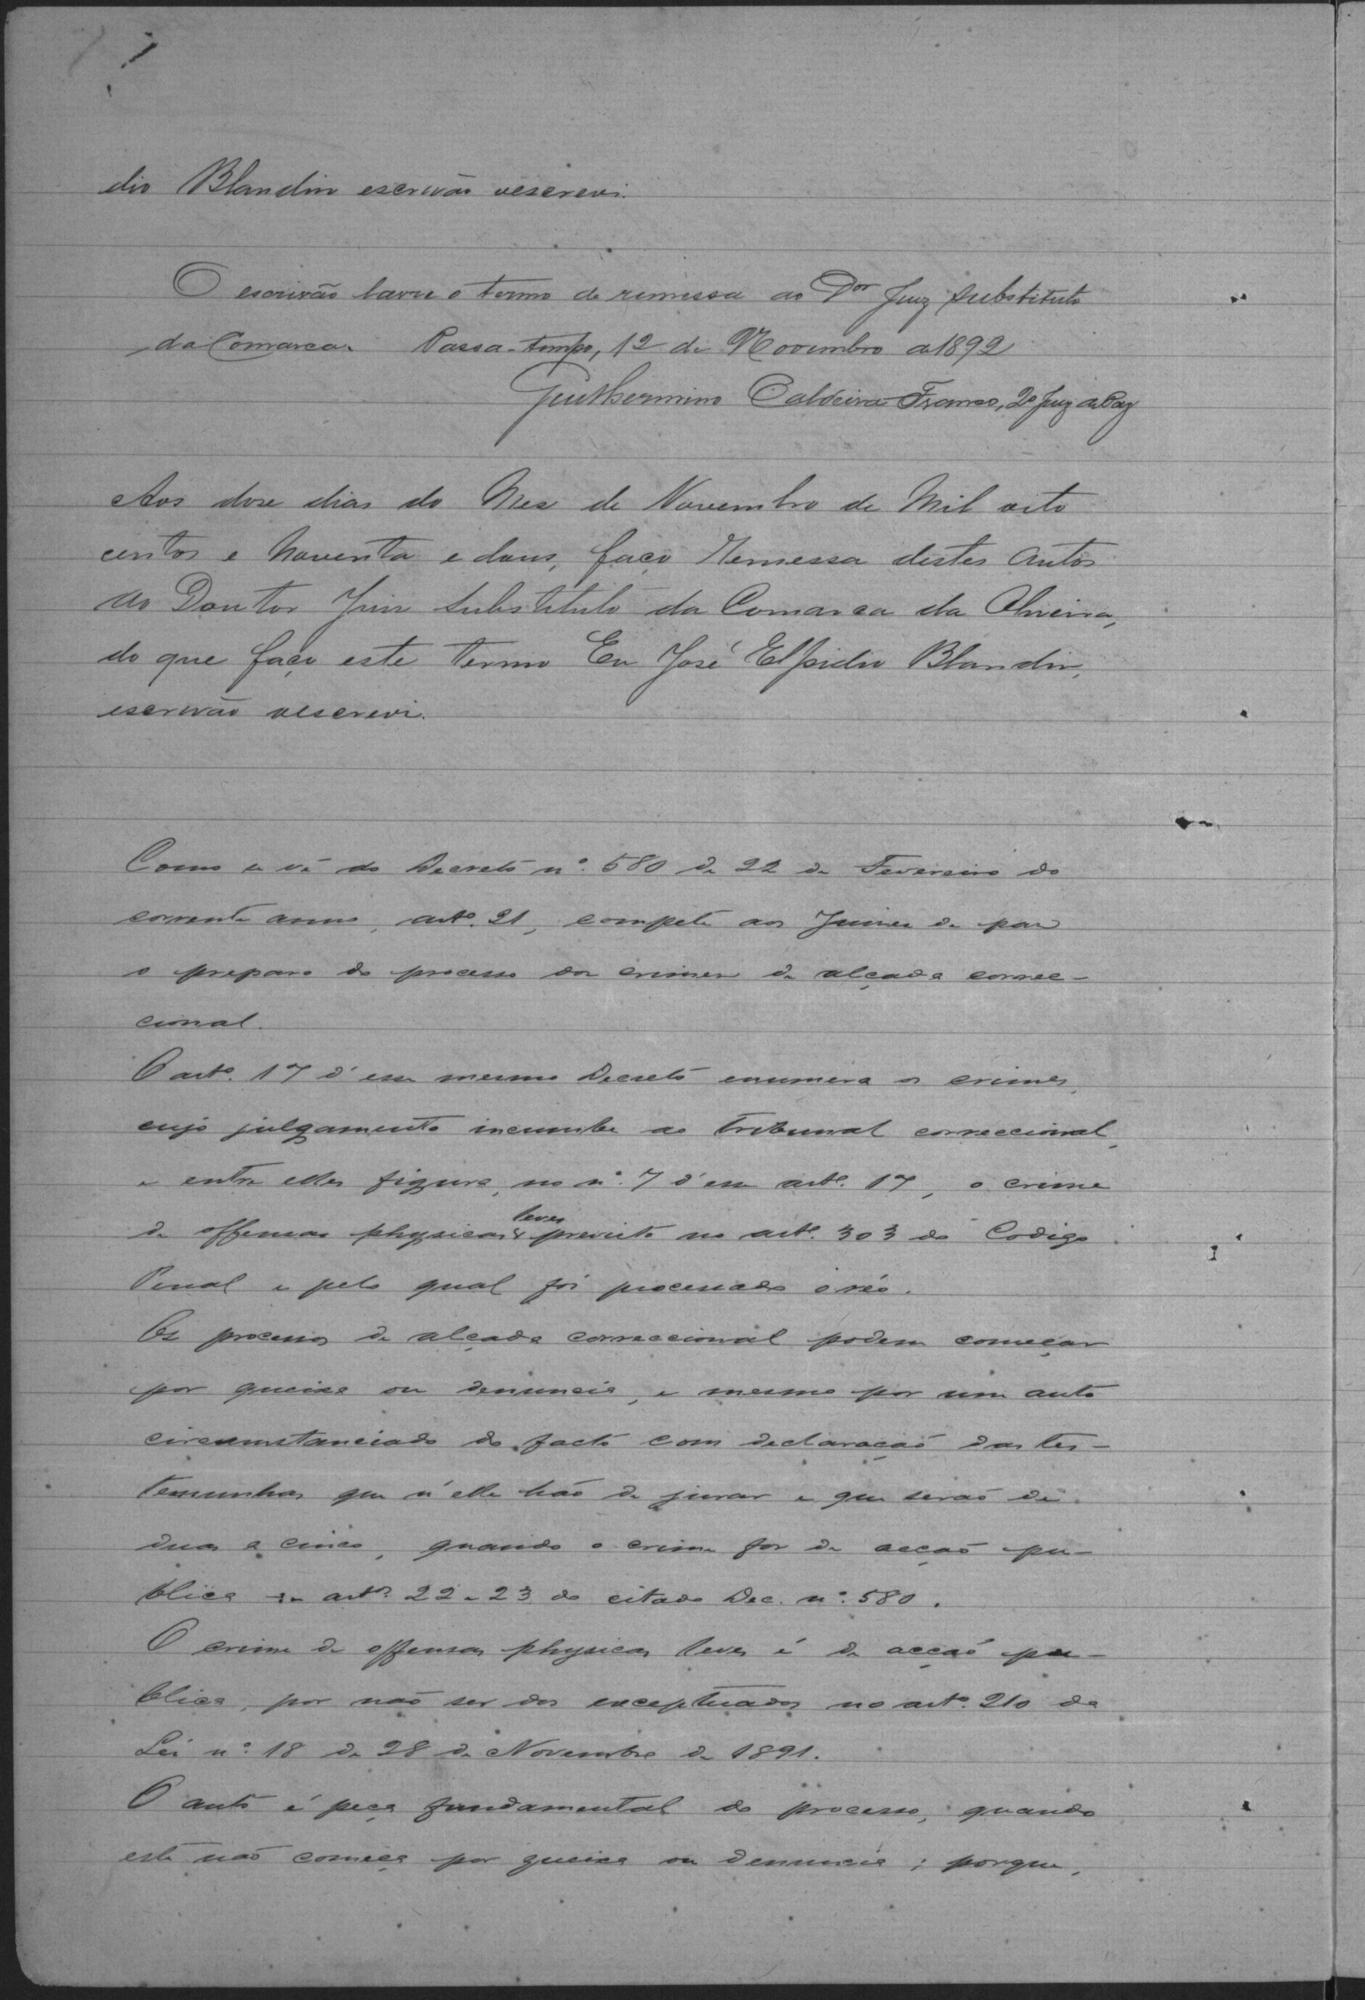 dio Blandin escrivão oescrevi.
O escrivão lavre o termo de remessa ao Dor Juiz Substituto
da Comarca. Passa-tempo, 12 de Novembro de 1892
Guilhermino Caldeira Franco, 2º Juiz de Paz
Aos dose dias do Mes de Novembro de Mil oito
centos e Noventa e dous, faço Remessa destes autos
ao Doutor Juiz Substituto da Comarca da Oliveira,
do que faço este termo Eu José Elpidio Blandin,
escrivão oescrevi.
Como se vê do Decreto nº. 580 de 22 de Fevereiro do
corrente anno, artº. 21, compete aos Juizes de paz
o preparo do processo dos crimes de alçada correc-
cional.
O artº. 17 d'esse mesmo Decreto enumera os crimes,
cujo julgamento incumbe ao tribunal correccional,
e entre elles figura, no nº. 7 d'esse artº. 17, o crime
de offensas physicas leves previsto no artº. 303 do Codigo
Penal e pelo qual foi processado o réo.
Os processos de alçada correccional podem começar
por queixa ou denuncia, e mesmo por um auto
circumstanciado do facto com declaração das tes-
temunhas que n'elle hão de jurar e que serão de
duas a cinco, quando o crime for de acção pu-
blica artos 22 e 23 do citado Dec. nº. 580.
O crime de offensas physicas leves é de acção pu-
blica, por não ser dos exceptuados no artº. 210 da
Lei nº. 18 de 28 de Novembro de 1891.
O auto é peça fundamental do processo, quando
este não começa por queixa ou denuncia; porque,